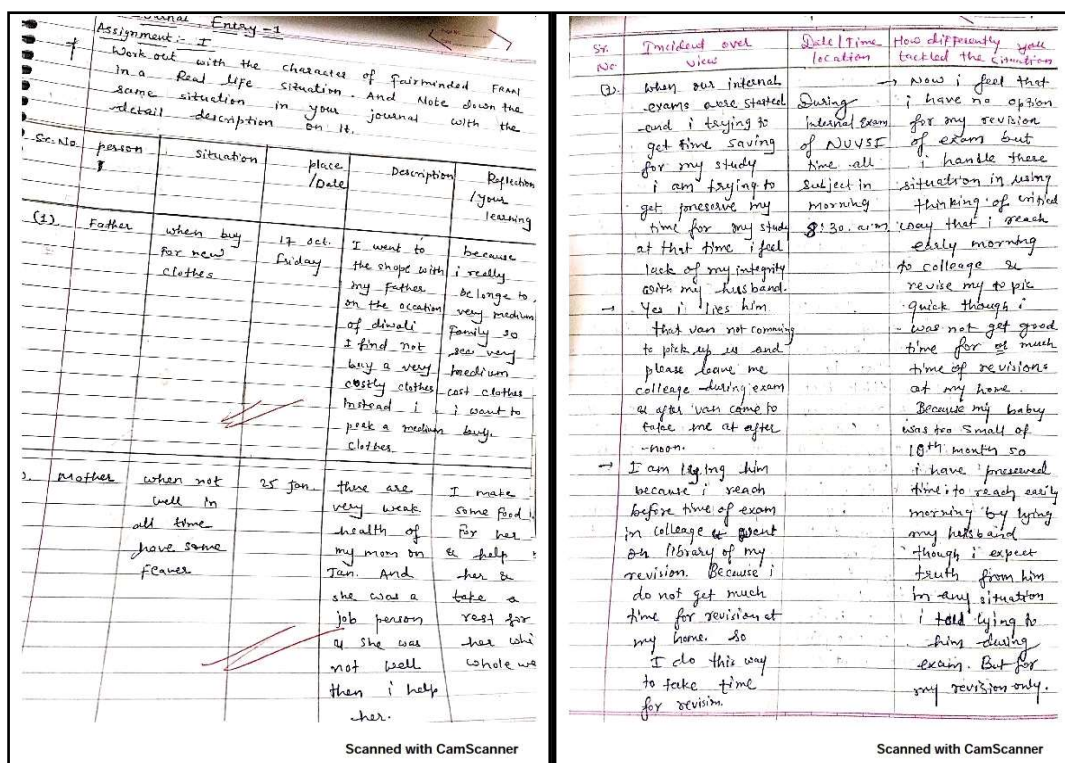 Journal Entry-1
Assignment :- I
Work out with the character of fairminded
in a Real life situation. And Note down the
same situation in your journal with the
detail description on it.
Sr. No. person situation place /Date Description Reflection /your learning
(1). Father
when buy
for new
clothes
17 oct.
friday
I went to
the shope with
my Father
on the occation
of diwali
I find not
buy a very
costly clothes
instead i
peek a medium
clothes.
because
i really
belonge to
very medium
family so
see very
medium
cost clothes
i want to
buy.
Mother
when not
well in
all time
have some
feaver
25 Jan
there are
very weak
health of
my mom on
Jan. And
she was a
job person
& she was
not well
then i help
her.
I make
some food
for her
& help
her &
take a
rest for
her whi
whole we
Scanned with CamScanner
Sr. No.
Incident over view
Date/Time location
How differently you tackled the situation
when our internal
exams were started
and i trying to
get time saving
for my study
i am trying to
get preserve my
time for my study
at that time i feel
lack of my integrity
with my husband.
→ Yes i lies him
that van not comming
to pick up us and
please leave me
colleage during exam
& after van come to
take me at after
-noon.
→ I am lying him
because i reach
before time of exam
in colleage & went
on library of my
revision. Because i
do not get much
time for revision at
my home. so
I do this way
to take time
for revision.
During
internal Exam
of NUVSI
time all
subject in
morning
8:30. a.m
→ Now i feel that
i have no option
for my revision
of exam but
i handle there
situation in using
thinking of critical
way that i reach
early morning
to colleage &
revise my topic
quick though i
was not get good
time for much
time of revisions
at my home
Because my baby
was too small of
10th month so
i have preserved
time to reach early
morning by lying
my husband
though i expect
truth from him
in any situation
i told lying to
him during
exam. But for
my revision only.
Scanned with CamScanner